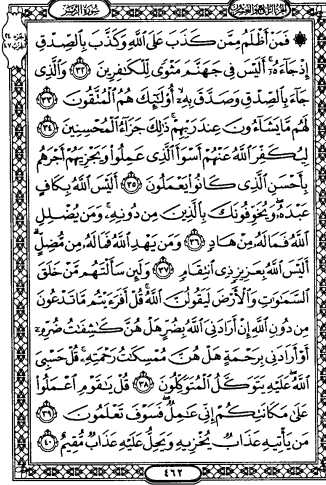 سُورَةُ الزُّمَرِ
۞ فَمَنْ أَظْلَمُ مِمَّن كَذَبَ عَلَى ٱللَّهِ وَكَذَّبَ بِٱلصِّدْقِ
إِذْ جَآءَهُۥٓ أَلَيْسَ فِى جَهَنَّمَ مَثْوًى لِّلْكَٰفِرِينَ ٣٢ وَٱلَّذِى
جَآءَ بِٱلصِّدْقِ وَصَدَّقَ بِهِۦٓ أُو۟لَٰٓئِكَ هُمُ ٱلْمُتَّقُونَ ٣٣
لَهُم مَّا يَشَآءُونَ عِندَ رَبِّهِمْ ذَٰلِكَ جَزَآءُ ٱلْمُحْسِنِينَ ٣٤
لِيُكَفِّرَ ٱللَّهُ عَنْهُمْ أَسْوَأَ ٱلَّذِى عَمِلُوا۟ وَيَجْزِيَهُمْ أَجْرَهُم
بِأَحْسَنِ ٱلَّذِى كَانُوا۟ يَعْمَلُونَ ٣٥ أَلَيْسَ ٱللَّهُ بِكَافٍ
عَبْدَهُۥ وَيُخَوِّفُونَكَ بِٱلَّذِينَ مِن دُونِهِۦ وَمَن يُضْلِلِ
ٱللَّهُ فَمَا لَهُۥ مِنْ هَادٍ ٣٦ وَمَن يَهْدِ ٱللَّهُ فَمَا لَهُۥ مِن مُّضِلٍّ
أَلَيْسَ ٱللَّهُ بِعَزِيزٍ ذِى ٱنتِقَامٍ ٣٧ وَلَئِن سَأَلْتَهُم مَّنْ خَلَقَ
ٱلسَّمَٰوَٰتِ وَٱلْأَرْضَ لَيَقُولُنَّ ٱللَّهُ قُلْ أَفَرَءَيْتُم مَّا تَدْعُونَ
مِن دُونِ ٱللَّهِ إِنْ أَرَادَنِىَ ٱللَّهُ بِضُرٍّ هَلْ هُنَّ كَٰشِفَٰتُ ضُرِّهِۦٓ
أَوْ أَرَادَنِى بِرَحْمَةٍ هَلْ هُنَّ مُمْسِكَٰتُ رَحْمَتِهِۦ قُلْ حَسْبِىَ
ٱللَّهُ عَلَيْهِ يَتَوَكَّلُ ٱلْمُتَوَكِّلُونَ ٣٨ قُلْ يَٰقَوْمِ ٱعْمَلُوا۟
عَلَىٰ مَكَانَتِكُمْ إِنِّى عَٰمِلٌ فَسَوْفَ تَعْلَمُونَ ٣٩
مَن يَأْتِيهِ عَذَابٌ يُخْزِيهِ وَيَحِلُّ عَلَيْهِ عَذَابٌ مُّقِيمٌ ٤٠
٤٦٢